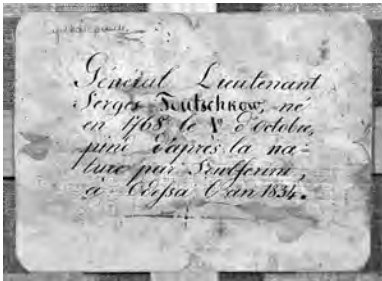 Général Lieutenant
Serges Toutschkow, né
en 1768 le 1r d'Octobre,
peint d'après la na-
ture par
à Odessa l'an 1834.